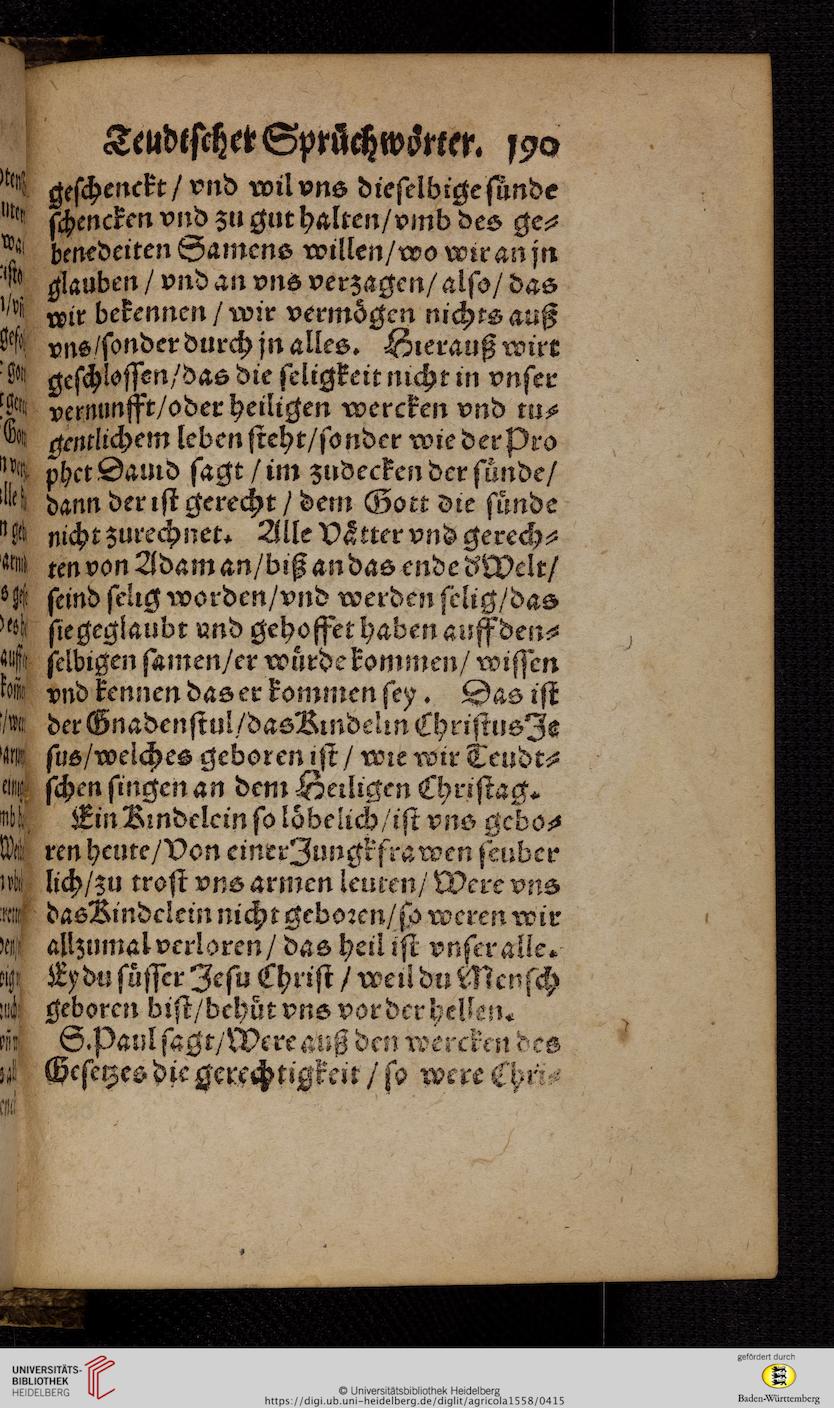 Teudtscher Sprüchwörter. 190
geschenckt / vnd wil vns dieselbige sünde
schencken vnd zu gut halten/vmb des ge⸗
benedeiten Samens willen/wo wir an jn
glauben / vnd an vns verzagen/ also/ das
wir bekennen / wir vermögen nichts auß
vns/sonder durch jn alles. Hierauß wirt
geschlossen/das die seligkeit nicht in vnser
vernunfft/oder heiligen wercken vnd tu⸗
gentlichem leben steht/sonder wie der Pro
phet Dauid sagt / im zudecken der sünde/
dann der ist gerecht / dem Gott die sünde
nicht zurechnet. Alle Vätter vnd gerech⸗
ten von Adam an/biß an das ende d'Welt/
seind selig worden/vnd werden selig/das
sie geglaubt vnd gehoffet haben auff den⸗
selbigen samen/er würde kommen/ wissen
vnd kennen das er kommen sey. Das ist
der Gnadenstul/das Kindelin Christus Je
sus/welches geboren ist / wie wir Teudt⸗
schen singen an dem Heiligen Christag.
Ein Kindelein so löbelich/ist vns gebo⸗
ren heute/Von einer Jungkfrawen seuber
lich/zu trost vns armen leuten/ Were vns
das Kindelein nicht geboren/so weren wir
allzumal verloren / das heil ist vnser alle.
Ey du süsser Jesu Christ / weil du Mensch
geboren bist/behüt vns vor der hellen.
S. Paul sagt/Were auß den wercken des
Gesetzes die gerechtigkeit / so were Chri⸗
UNIVERSITÄTS-
BIBLIOTHEK
HEIDELBERG
© Universitätsbibliothek Heidelberg
https://digi.ub.uni-heidelberg.de/diglit/agricola1558/0415
gefördert durch
Baden-Württemberg